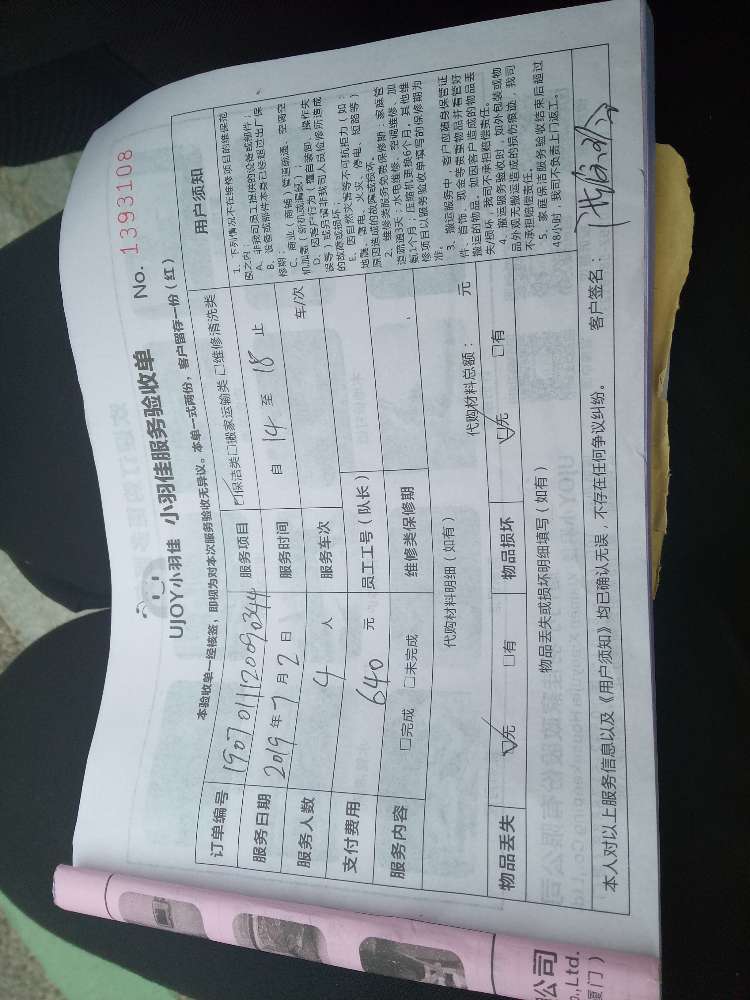 UJOY小羽佳 小羽佳服务验收单 No. 1393108
本验收单一经核签，即视为对本次服务验收无异议。本单一式两份，客户留存一份（红）
订单编号 1907011120090344 服务项目 ☑保洁类☐搬家运输类☐维修清洗类
服务日期 2019年7月2日 服务时间 自 14 至 18 止
服务人数 4 人 服务车次 车/次
支付费用 640 元 员工工号（队长）
服务内容 ☐完成 ☐未完成 维修类保修期
代购材料明细（如有） 代购材料总额： 元
物品丢失 ☑无 ☐有 物品损坏 ☑无 ☐有
物品丢失或损坏明细填写（如有）
用户须知
1、下列情况不在维修项目的维保范
围之内：
A、非我司员工提供的设备或部件；
B、设备或部件本身已经超过出厂保
修期；
C、商业（商铺）管道疏通、空调空
机加氟（新机或漏氟）；
D、因客户行为（擅自装卸、操作失
误等）或另请非我司人员检修所造成
的故障或损坏；
E、因自然灾害等不可抗拒力（如：
地震、雷电、火灾、停电、短路等）
原因造成的故障或损坏。
2、维修类服务免费保修期：家庭管
道疏通3天；水电维修、空调维修、加
氨1个月；压缩机更换6个月，其他维
修项目以服务验收单填写的保修期为
准。
3、搬运服务中，客户应随身保管证
件、首饰、现金等贵重物品并看管好
搬运的物品，如因客户造成的物品丢
失/损坏，我司不承担赔偿责任。
4、搬运服务验收时，如外包装或物
品外观无搬运造成的损伤痕迹，我司
不承担赔偿责任。
5、家庭保洁服务验收结束后超过
48小时，我司不负责上门返工。
本人对以上服务信息以及《用户须知》均已确认无误，不存在任何争议纠纷。 客户签名：
公司
o.,Ltd.
厦门）